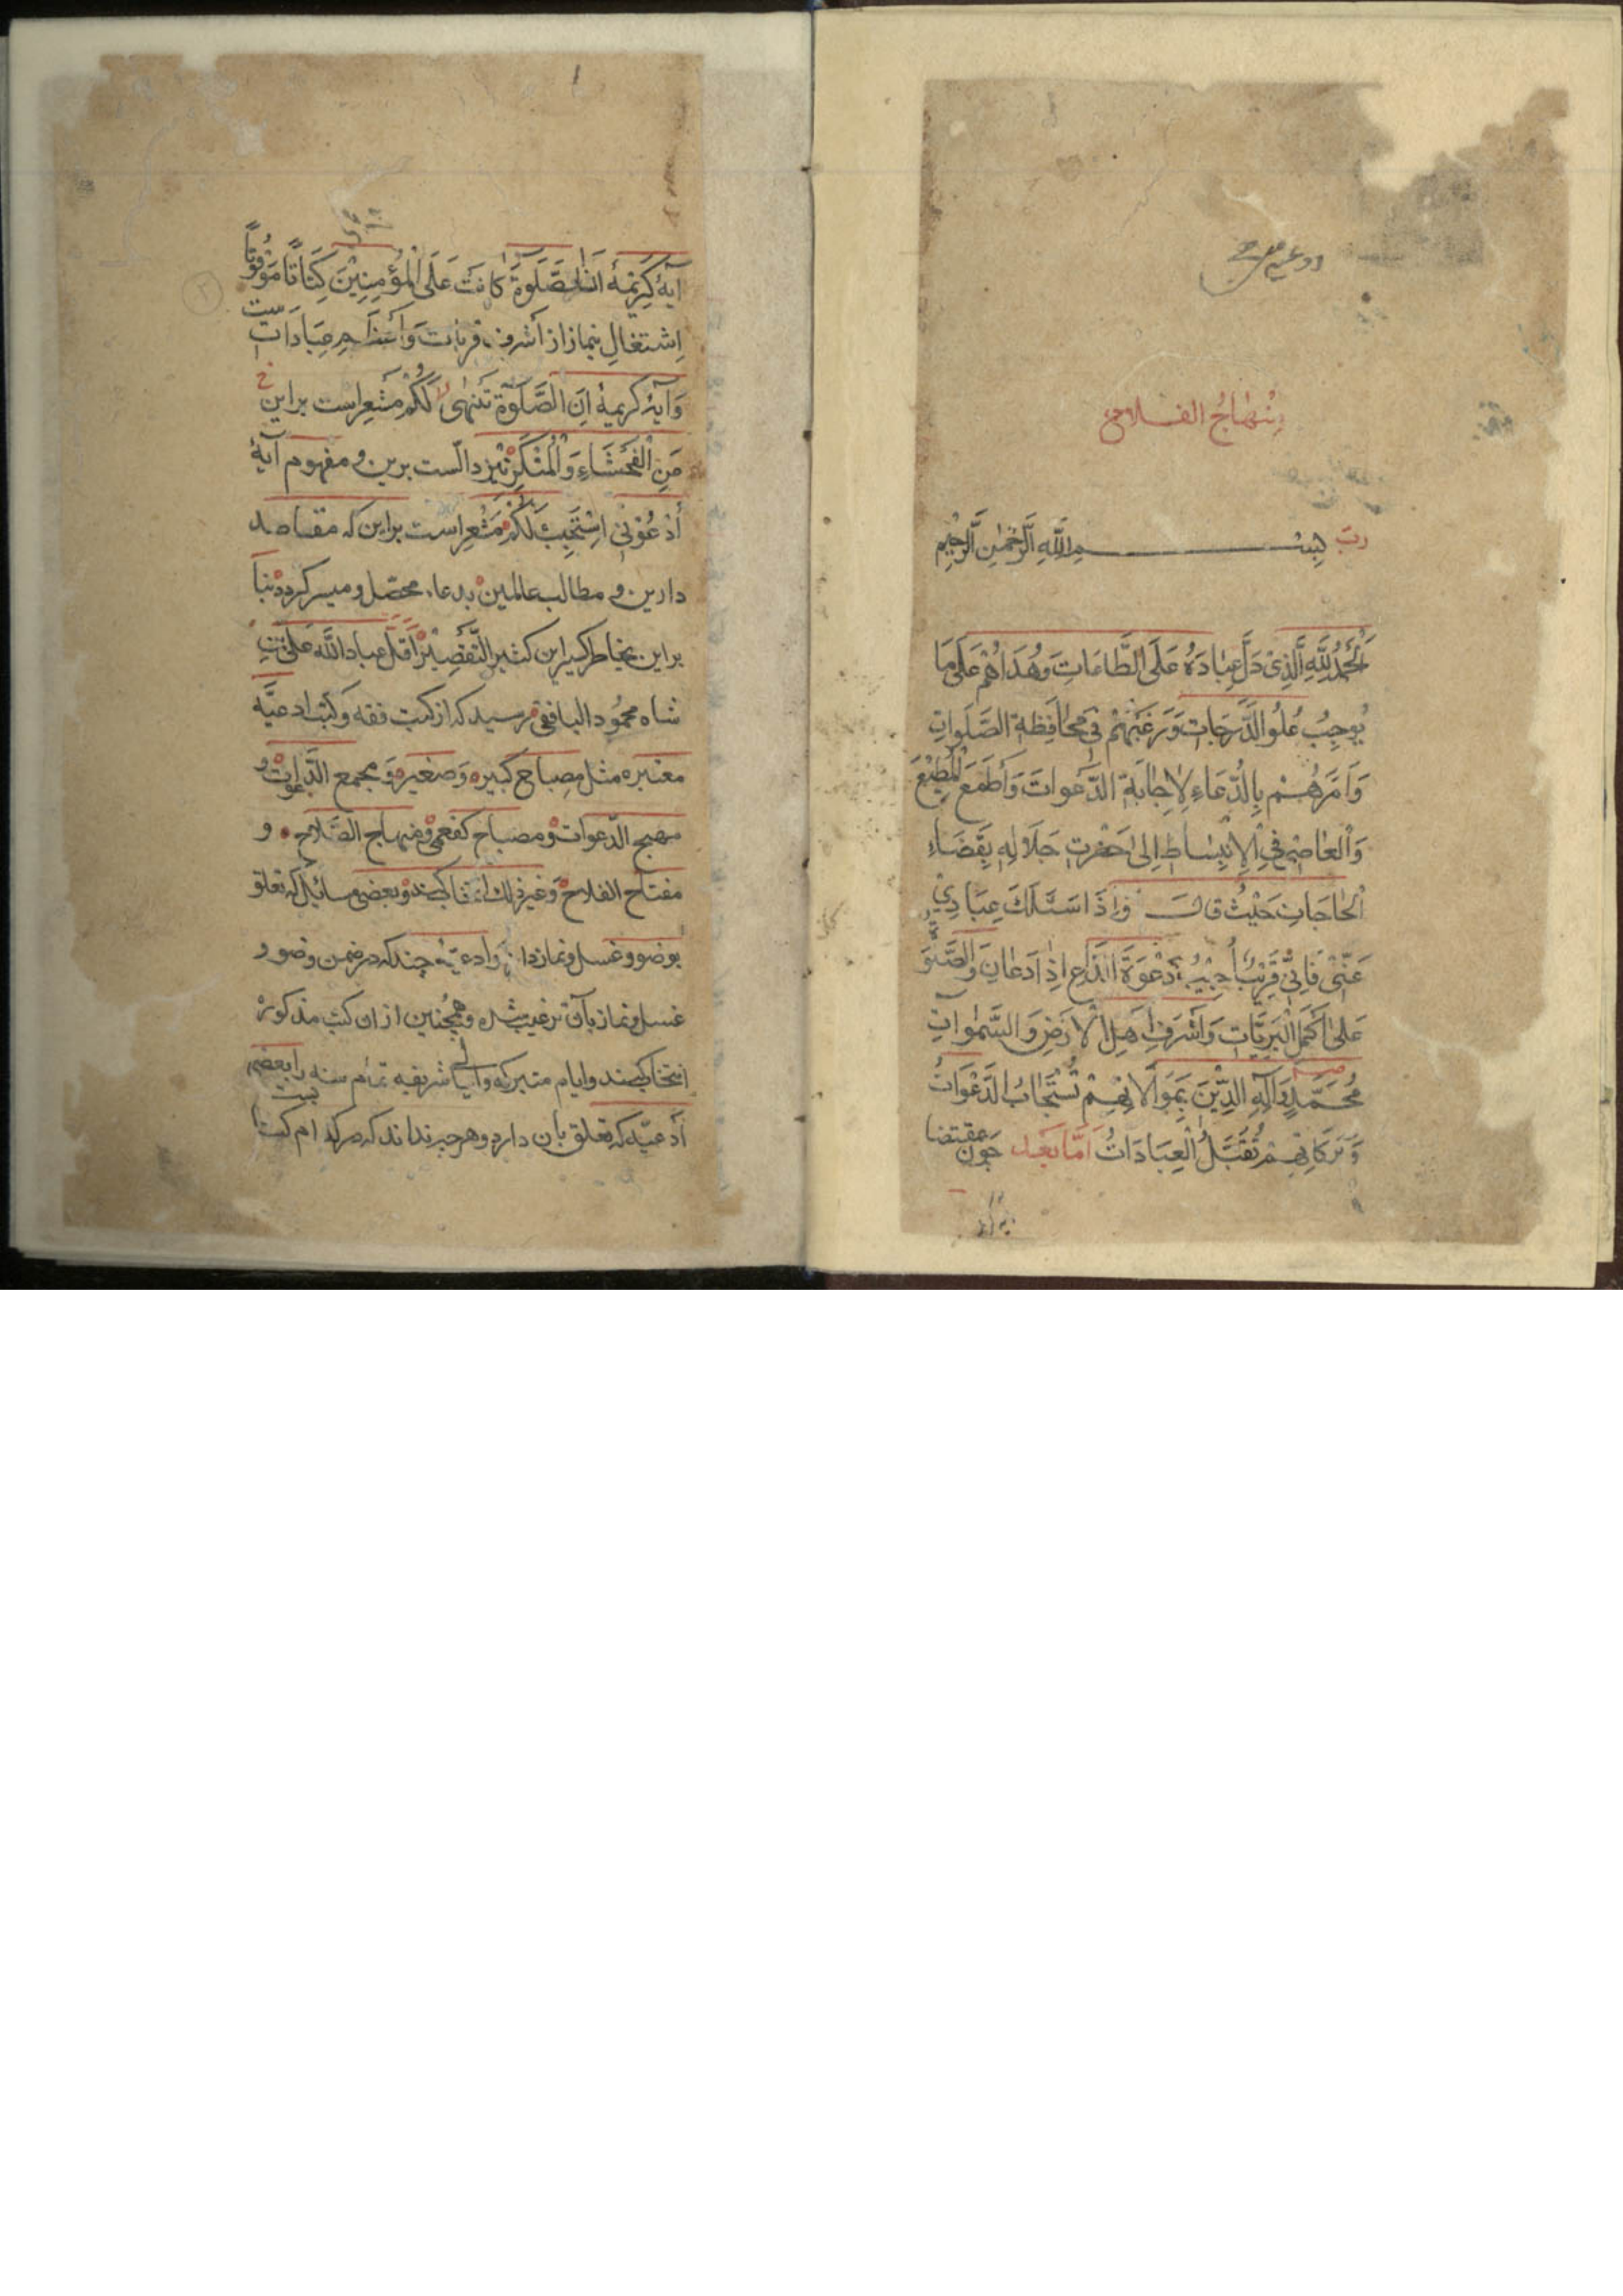 منهاج الفلاح
رب بسم الله الرحمن الرحيم
اَلْحَمْدُ لِلّٰهِ الَّذِیْ دَلَّ عِبَادَهُ عَلَى الطَّاعَاتِ وَهُدَاهُمْ عَلَى مَا
يُوجِبُ عُلُوَّ الدَّرَجَاتِ وَرَغَّبَهُمْ فِي مُحَافِظَةِ الصَّلَوَاتِ
وَاَمَرَهُمْ بِالدُّعَاءِ لِاِجَابَةِ الدَّعَوَاتِ وَأَطْمَعَ الْمُطِيْعَ
وَالْعَاصِيْ فِي الْاِنْبِسَاطِ اِلٰى حَضْرَتِ جَلَالِهِ بِقَضَاءِ
الْحَاجَاتِ حَيْثُ قَالَ وَاِذَا سَئَلَكَ عِبَادِيْ
عَنِّيْ فَاِنِّيْ قَرِيْبٌ اُجِيْبُ دَعْوَةَ الدَّاعِ اِذَا دَعَانِ وَالصَّلٰوةُ
عَلٰى اَكْمَلِ الْبَرِيَّاتِ وَاَشْرَفِ اَهْلِ الْاَرْضِ وَالسَّمٰوَاتِ
مُحَمَّدٍ وَآلِهِ الَّذِيْنَ بِمُوَالَاتِهِمْ تُسْتَجَابُ الدَّعَوَاتُ
وَبَرَكَاتِهِمْ تُقَبَّلُ الْعِبَادَاتُ اَمَّا بَعْد چون بمقتضا
آيۀ كريمۀ اِنَّ الصَّلٰوةَ كَانَتْ عَلَى الْمُؤْمِنِيْنَ كِتَابًا مَوْقُوتًا
اِشتغالِ بنماز از اَشرف قربات وَاَعظم عِبَادَات ست
وَآيۀ كريمۀ اِنَّ الصَّلٰوةَ تَنْهٰى لَكُمْ مُشعر است براين
عَنِ الْفَحْشَاءِ وَالْمُنْكَرِ نيز دالست برين و مفهوم آيۀ
اُدْعُوْنِيْ اَسْتَجِبْ لَكُمْ مُشْعِر است براين كه مقاصد
دارين و مطالب عالمين بدعا محصّل و ميسر گردد بنا
براين بخاطر كسير اين كثير التَّقْصِيْر اَقَلِّ عباد الله على بن
شاه محمود البافقى رسيد كه از كتب فقه وَكتب ادعيّه
معتبره مثل مصباح كبير و صغير و مجمع الدّعوات و
مهج الدّعوات و مصباح كفعمى و منهاج الصّلاح و
مفتاح الفلاح و غير ذلك انتخاب كند و بعضى مسائل كه تعلق
بوضو و غسل و نماز دارد و ادعيۀ چند كه در ضمن وضو و
غسل و نماز بآن ترغيب شده و همچنين از ان كتب مذكوره
انتخاب كند و ايام متبركه و ليالى شريفه تمام سنه را بعضى
اَدعيّه كه تعلق بآن دارد و هر چيز نداند كه هر كدام كتا بيست